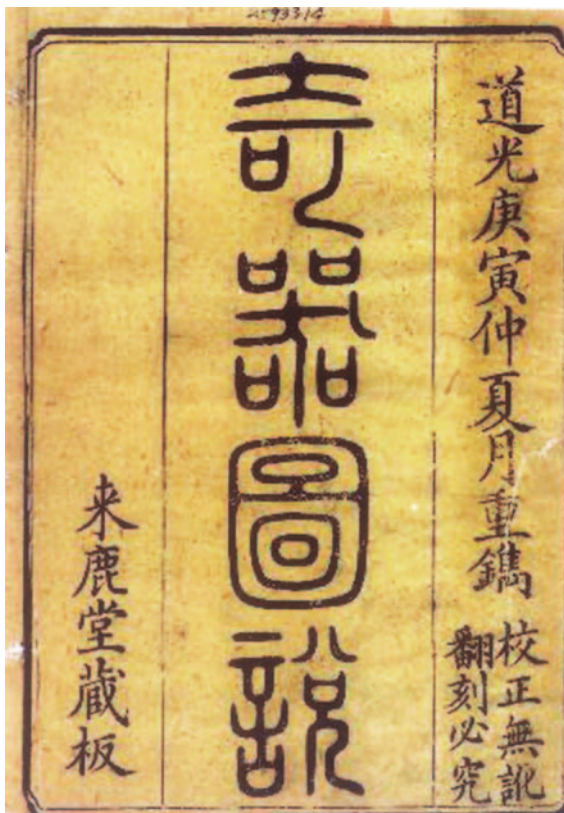 道光庚寅仲夏月重鐫
校正無訛
翻刻必究
奇器圖說
来鹿堂藏板